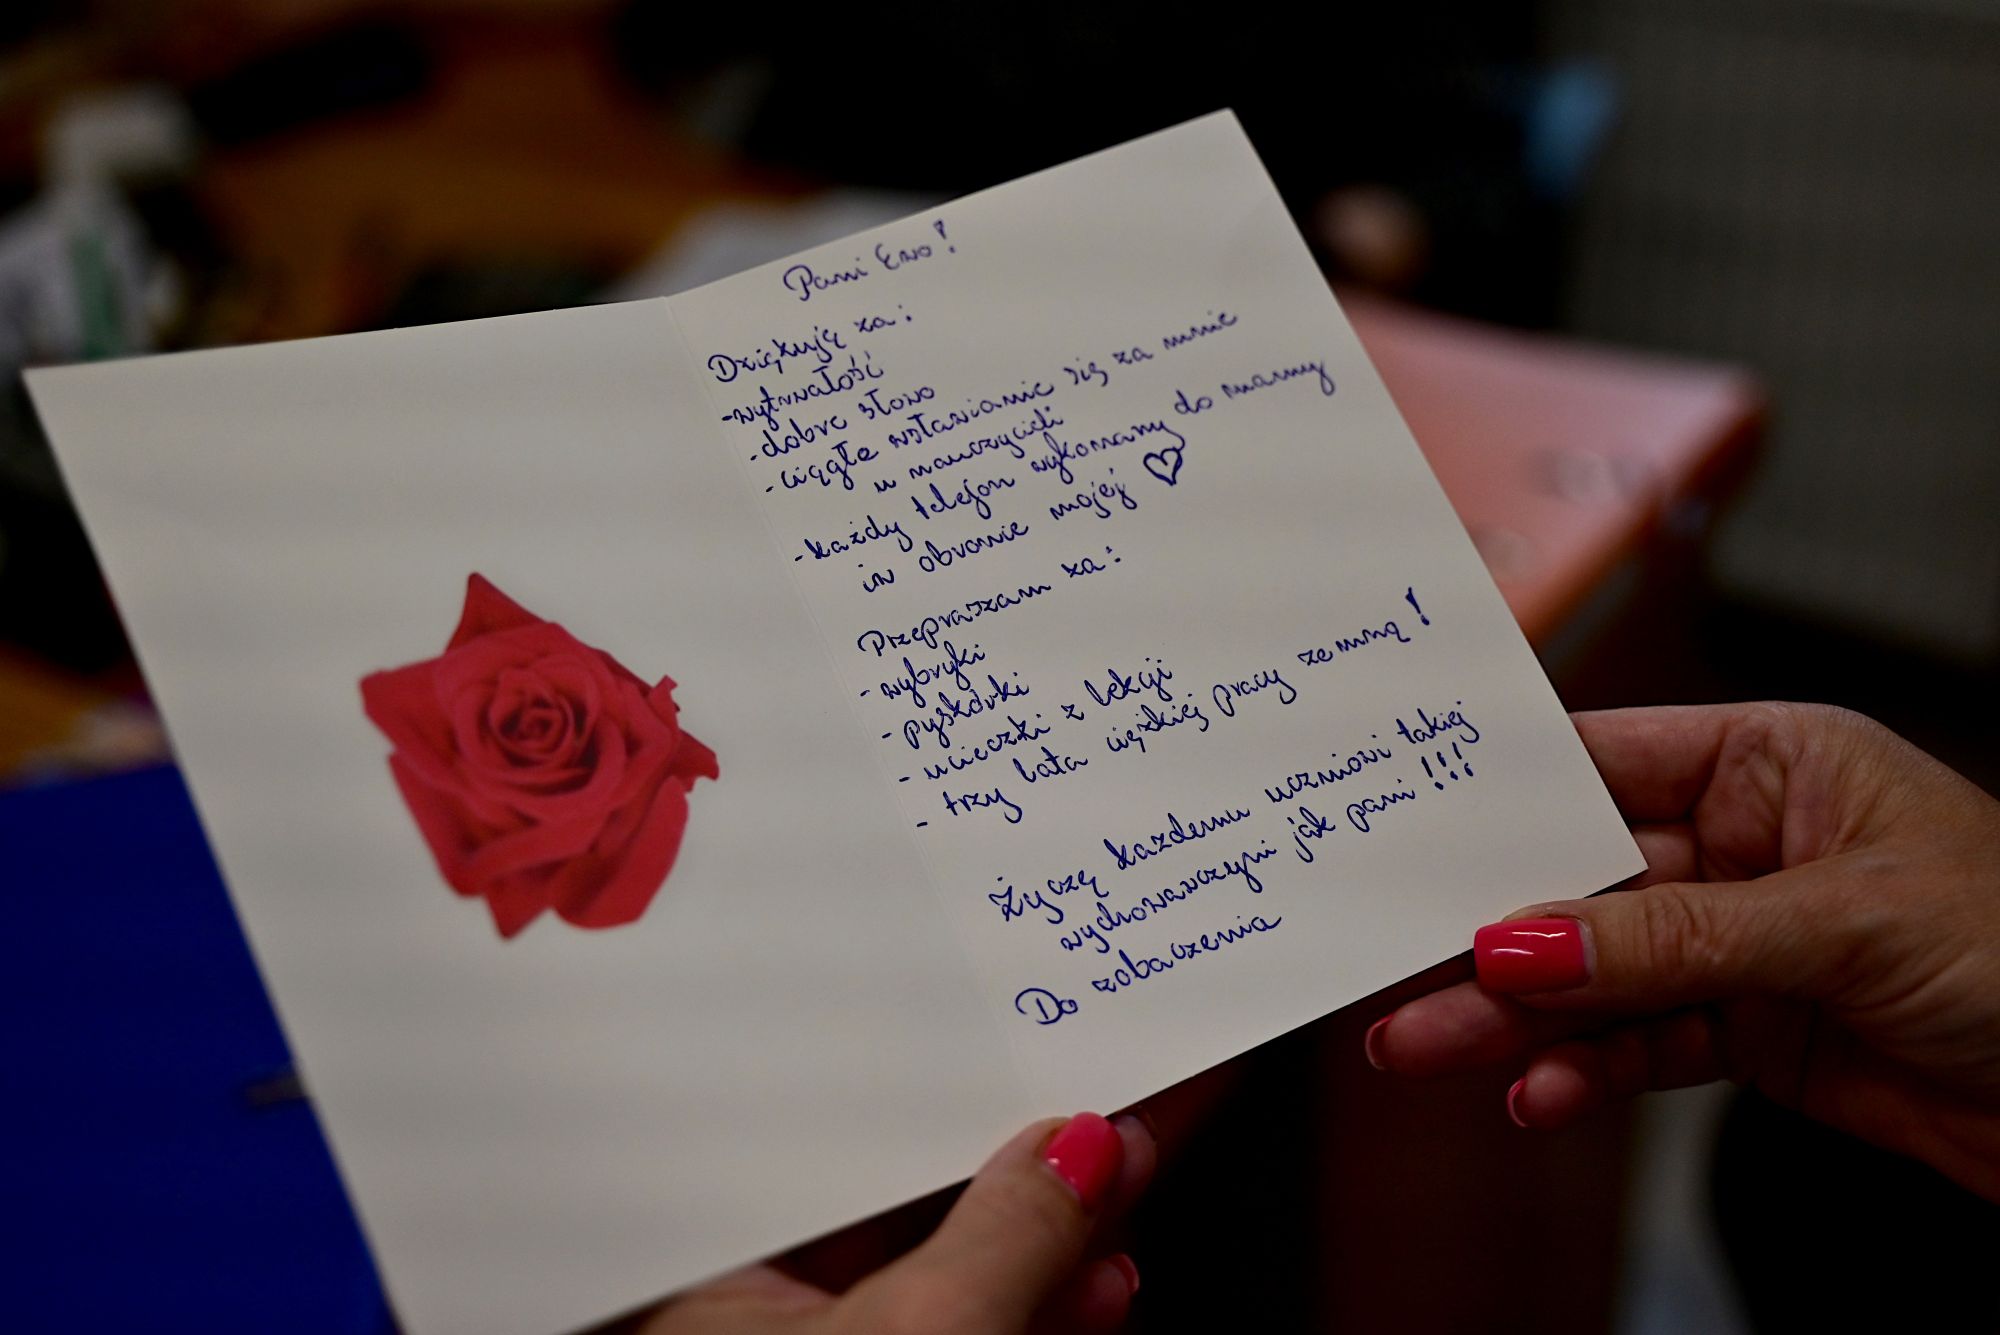 Pani Ewo!
Dziękuję za:
- wytrwałość
- dobre słowo
- ciągłe wstawianie się za mnie
u nauczycieli
- każdy telefon wykonany do mamy
in obronie mojej ♡
Przepraszam za:
- wybryki
- pyskówki
- ucieczki z lekcji
- trzy lata ciężkiej pracy ze mną!
Życzę każdemu uczniowi takiej
wychowawczyni jak pani!!!
Do zobaczenia